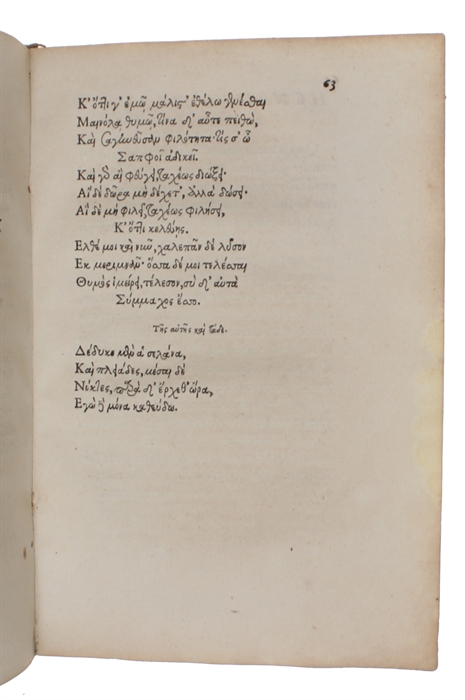 63
Κ' ὅττι γ' ἐμῷ μάλις' ἐθέλω γενέσθαι
Μαινόλᾳ θυμῷ, τίνα δ' αὖτε πείθω,
Καὶ σαγηνεῦσαν φιλότητα· τίς σ' ὦ
Σαπφοῖ ἀδικεῖ.
Καὶ γὸ αἰ φεύγει, ταχέως διώξει·
Αἰ δὲ δῶρα μὴ δέχετ', ἀλλὰ δώσει·
Αἰ δὲ μὴ φιλεῖ, ταχέως φιλήσει,
Κ' ὅττι κελεύης.
Ελθέ μοι καὶ νῦν, χαλεπᾶν δὲ λῦσον
Εκ μεριμνᾶν· ὅσσα δέ μοι τελέσσαι
Θυμὸς ἱμείρει, τέλεσον, σὺ δ' αὐτὰ
Σύμμαχος ἔσσο.
Τῆς αὐτῆς καὶ τάδε.
Δέδυκε μὲν ἁ σελάνα,
Καὶ πληϊάδες, μέσαι δὲ
Νύκτες, παρὰ δ' ἔρχεθ' ὥρα,
Εγὼ δὲ μόνα καθεύδω.